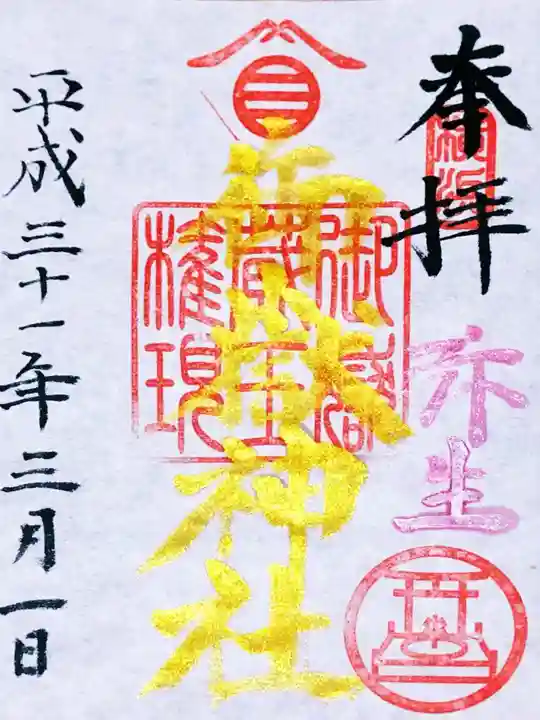 奉拝
弥生
御嶽神社
御嶽
蔵王
権現
平成三十一年三月一日